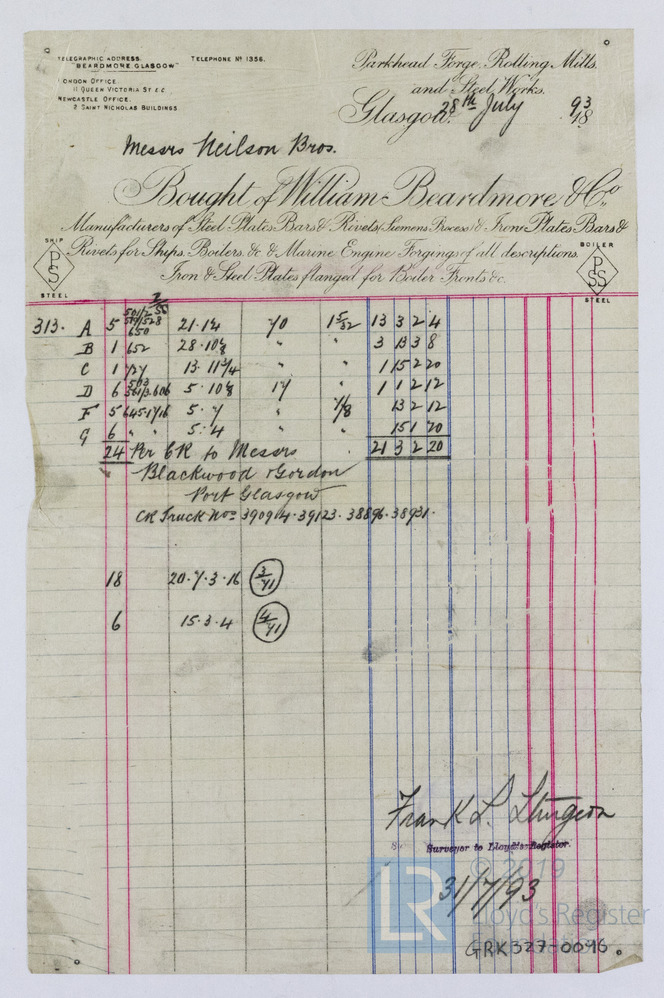 TELEGRAPHIC ADDRESS.
"BEARDMORE. GLASGOW"
TELEPHONE Nº 1356.
LONDON OFFICE.
11 QUEEN VICTORIA ST E.C.
NEWCASTLE OFFICE.
2 SAINT NICHOLAS BUILDINGS
Parkhead Forge, Rolling Mills,
and Steel Works.
Glasgow 28th July 1893
Messrs Neilson Bros.
Bought of William Beardmore & Co.,
Manufacturers of Steel Plates, Bars & Rivets (Siemens Process) & Iron Plates, Bars &
Rivets for Ships, Boilers, &c. & Marine Engine Forgings of all descriptions.
Iron & Steel Plates flanged for Boiler Fronts &c.
SHIP
PS
STEEL
BOILER
PSS
STEEL
313. A 5 650 21·1¼ 70 1 5/32 13 3 2 4
B 1 652 28·10⅛ " " 3 13 3 8
C 1 727 13·11¾ " " 1 15 2 20
D 6 5·10⅛ 17 " 1 1 2 12
F 5 5·7 " 13 2 12
G 6 " " 5·4 " " 15 1 20
24 Per CR to Messrs 21 3 2 20
Blackwood & Gordon
Port Glasgow
CR Truck Nos 390914·39123·38896·38931·
18 20·7·3·16 3/71
6 15·3·4 4/71
Frank L. Sturgeon
Surveyor to Lloyd's Register.
31/7/93
© 2019
LR
Lloyd's Register
Foundation
GRK327-0096